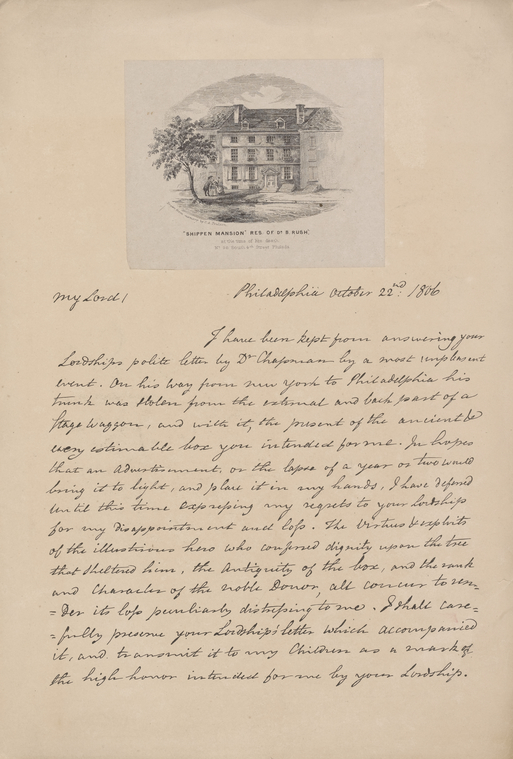 "SHIPPEN MANSION," RES. OF Dr. B. RUSH,
at the time of his death
Philadelphia October 22nd. 1806
My Lord /
I have been kept from answering your
Lordship's polite letter by Dr Chapman by a most unpleasant
event. On his way from new York to Philadelphia his
trunk was stolen from the external and back part of a
Stage waggon, and with it, the present of the ancient &
every estimable box you intended for me. In hopes
that an Advertisement, or the lapse of a year or two would
bring it to light, and place it in my hands, I have defered
until this time expressing my regrets to your Lordship
for my disappointment and loss. The virtues & exploits
of the illustrious hero who confered dignity upon the tree
that sheltered him, the antiquity of the box, and the rank
and Character of the noble Donor, all concur to ren=
=der its loss peculiarly distressing to me. I shall care=
=fully preserve your Lordship's letter which accompanied
it, and transmit it to my Children as a mark of
the high honor intended for me by your Lordship.